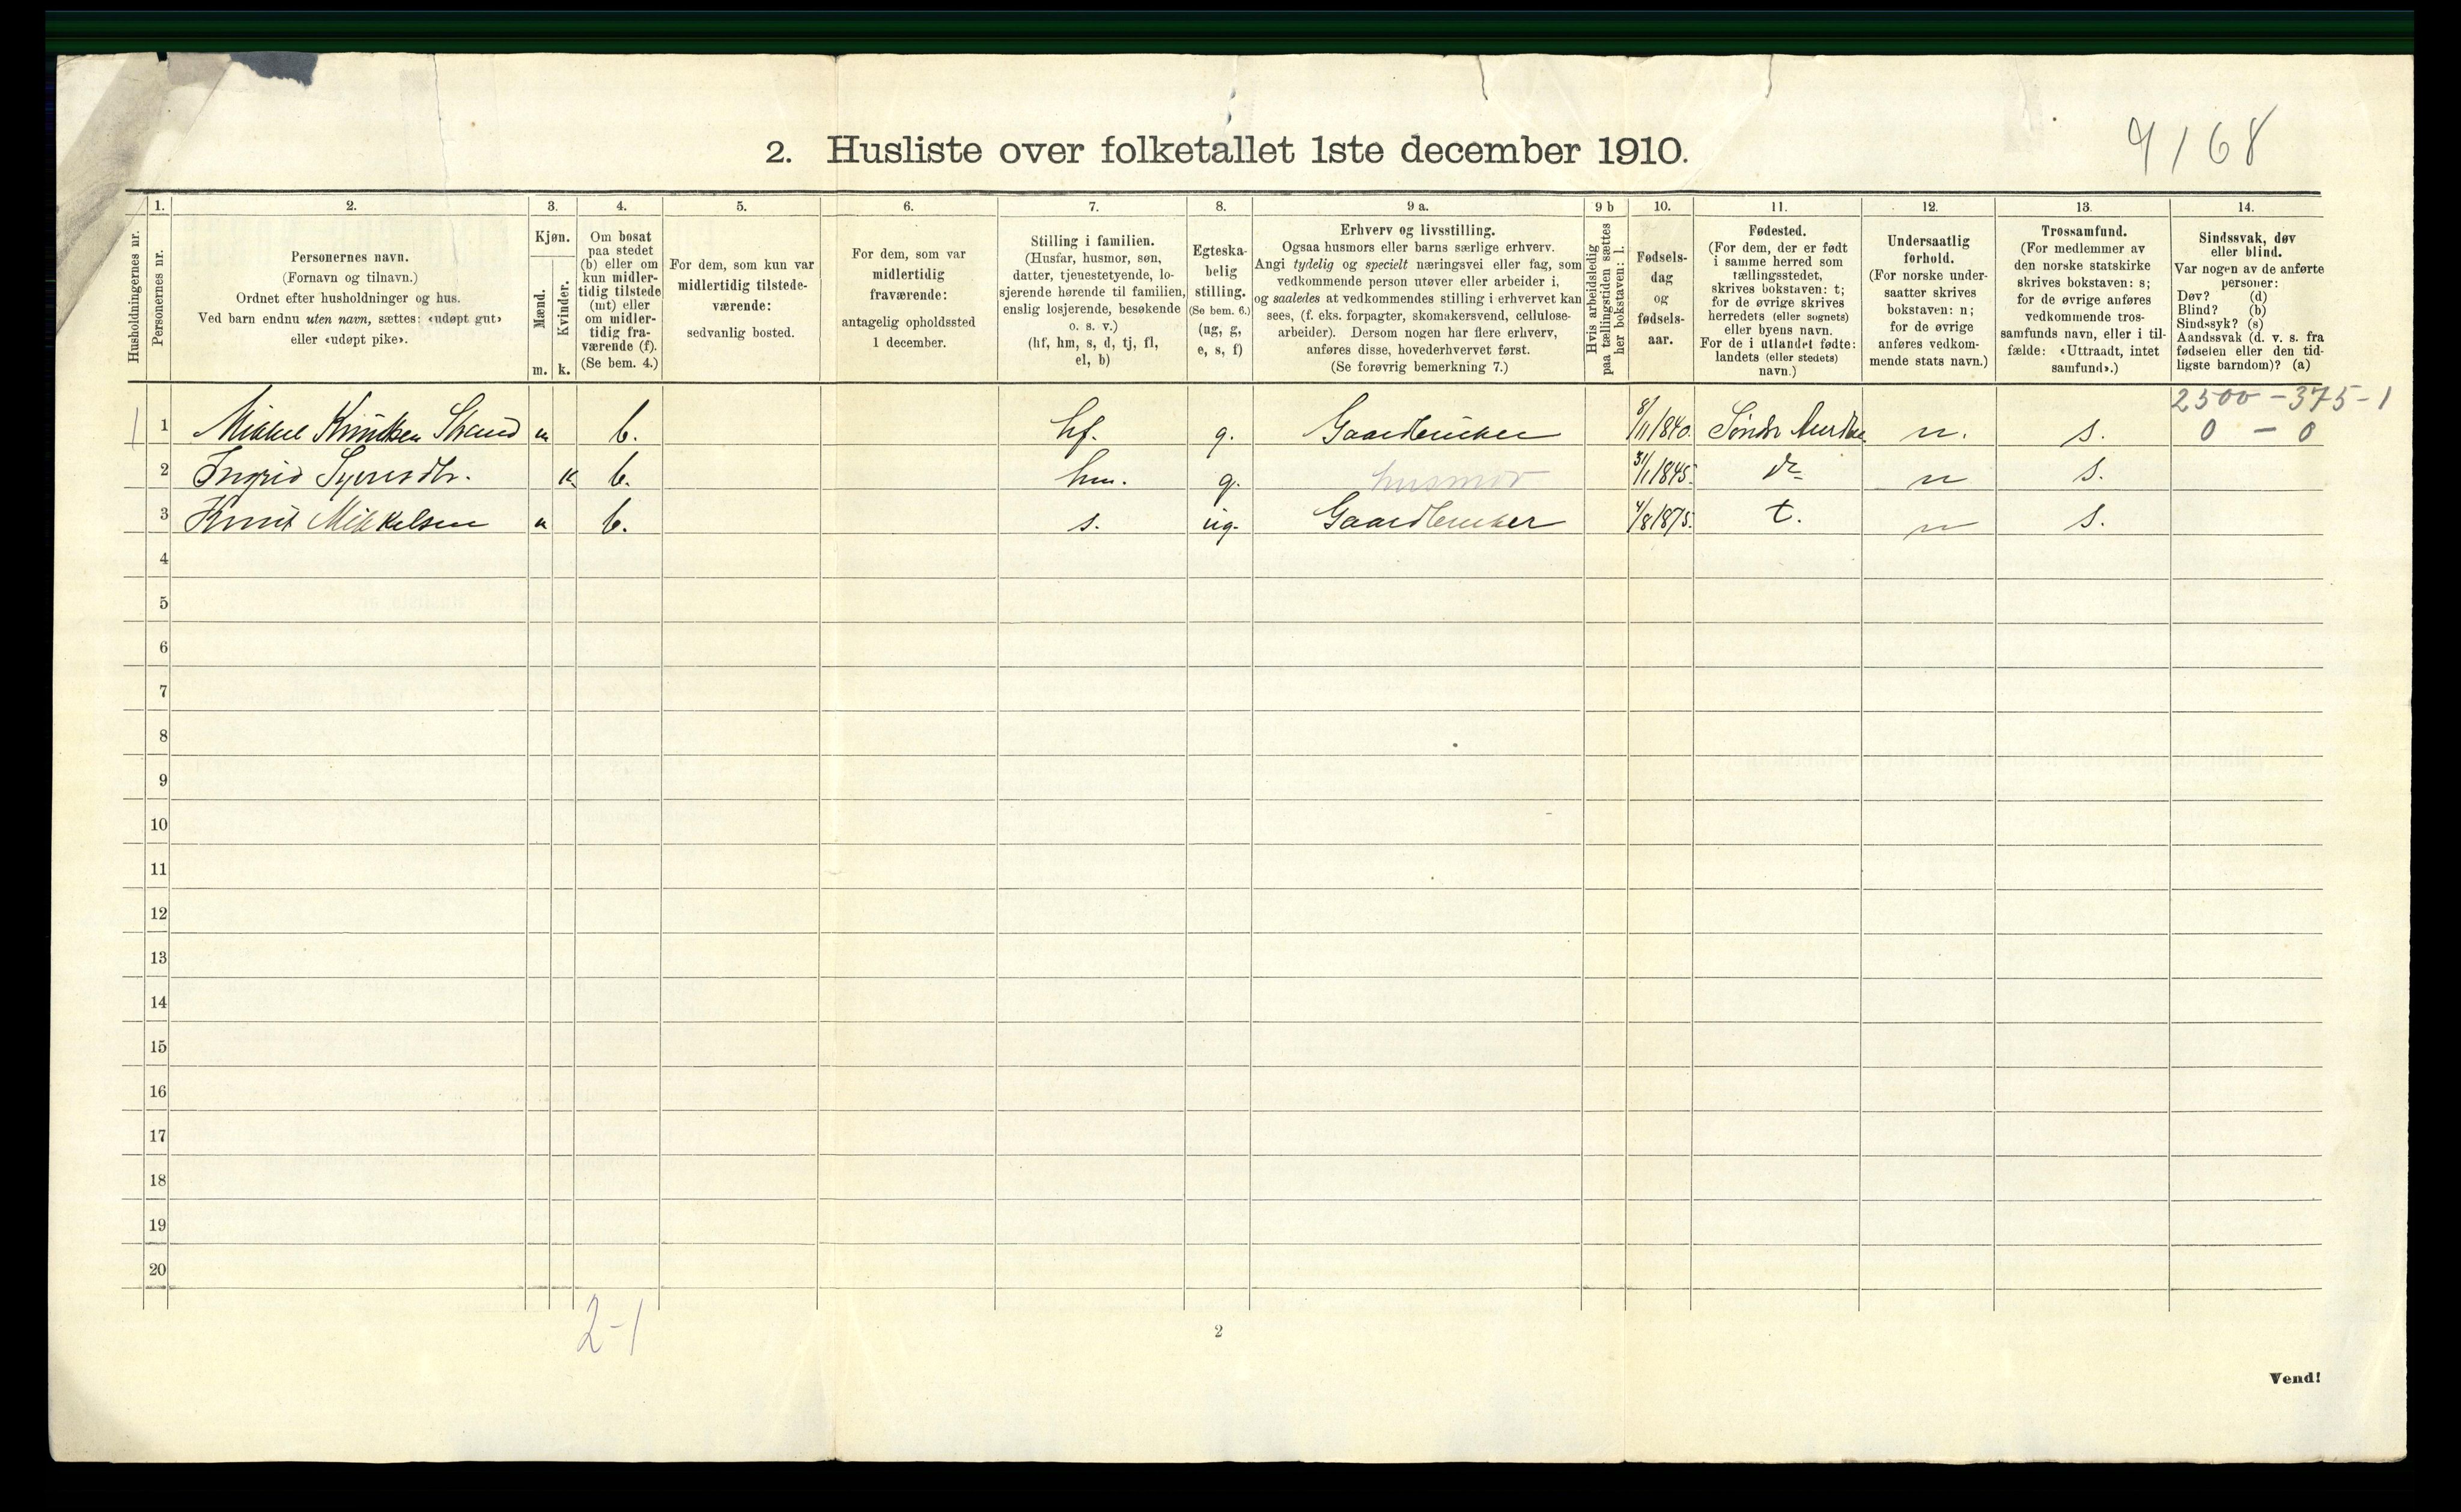 9/68
2. Husliste over folketallet 1ste december 1910.
Husholdningernes nr.
1.
Personernes nr.
2.
Personernes navn.
(Fornavn og tilnavn.)
Ordnet efter husholdninger og hus.
Ved barn endnu uten navn, sættes: «udøpt gut»
eller «udøpt pike».
3.
Kjøn.
Mænd.
Kvinder.
m. k.
4.
Om bosat
paa stedet
(b) eller om
kun midler-
tidig tilstede
(mt) eller
om midler-
tidig fra-
værende (f).
(Se bem. 4.)
5.
For dem, som kun var
midlertidig tilstede-
værende:
sedvanlig bosted.
6.
For dem, som var
midlertidig
fraværende:
antagelig opholdssted
1 december.
7.
Stilling i familien.
(Husfar, husmor, søn,
datter, tjenestetyende, lo-
sjerende hørende til familien,
enslig losjerende, besøkende
o. s. v.)
(hf, hm, s, d, tj, fl,
el, b)
8.
Egteska-
belig
stilling.
(Se bem. 6.)
(ug, g,
e, s, f)
9 a.
Erhverv og livsstilling.
Ogsaa husmors eller barns særlige erhverv.
Angi tydelig og specielt næringsvei eller fag, som
vedkommende person utøver eller arbeider i,
og saaledes at vedkommendes stilling i erhvervet kan
sees, (f. eks. forpagter, skomakersvend, cellulose-
arbeider). Dersom nogen har flere erhverv,
anføres disse, hovederhvervet først.
(Se forøvrig bemerkning 7.)
9 b
Hvis arbeidsledig
paa tællingstiden sættes
her bokstaven: l.
10.
Fødsels-
dag
og
fødsels-
aar.
11.
Fødested.
(For dem, der er født
i samme herred som
tællingsstedet,
skrives bokstaven: t;
for de øvrige skrives
herredets (eller sognets)
eller byens navn.
For de i utlandet fødte:
landets (eller stedets)
navn.)
12.
Undersaatlig
forhold.
(For norske under-
saatter skrives
bokstaven: n;
for de øvrige
anføres vedkom-
mende stats navn.)
13.
Trossamfund.
(For medlemmer av
den norske statskirke
skrives bokstaven: s;
for de øvrige anføres
vedkommende tros-
samfunds navn, eller i til-
fælde: «Uttraadt, intet
samfund».)
14.
Sindssvak, døv
eller blind.
Var nogen av de anførte
personer:
Døv? (d)
Blind? (b)
Sindssyk? (s)
Aandssvak (d. v. s. fra
fødselen eller den tid-
ligste barndom)? (a)
2500 - 375 - 1
1 1 Mikkel Knudsen Strand m b. hf. g. Gaardbruker 8/11 1840. Søndr Aurdal n. s. 0 - 0
2 Ingrid k b. hm. g. husmor 31/1 1845. do n s.
3 Knut Mikkelsen m b. s. ug. Gaardbruker 4/8 1875. t. n s.
4
5
6
7
8
9
10
11
12
13
14
15
16
17
18
19
20
2-1
2
Vend!